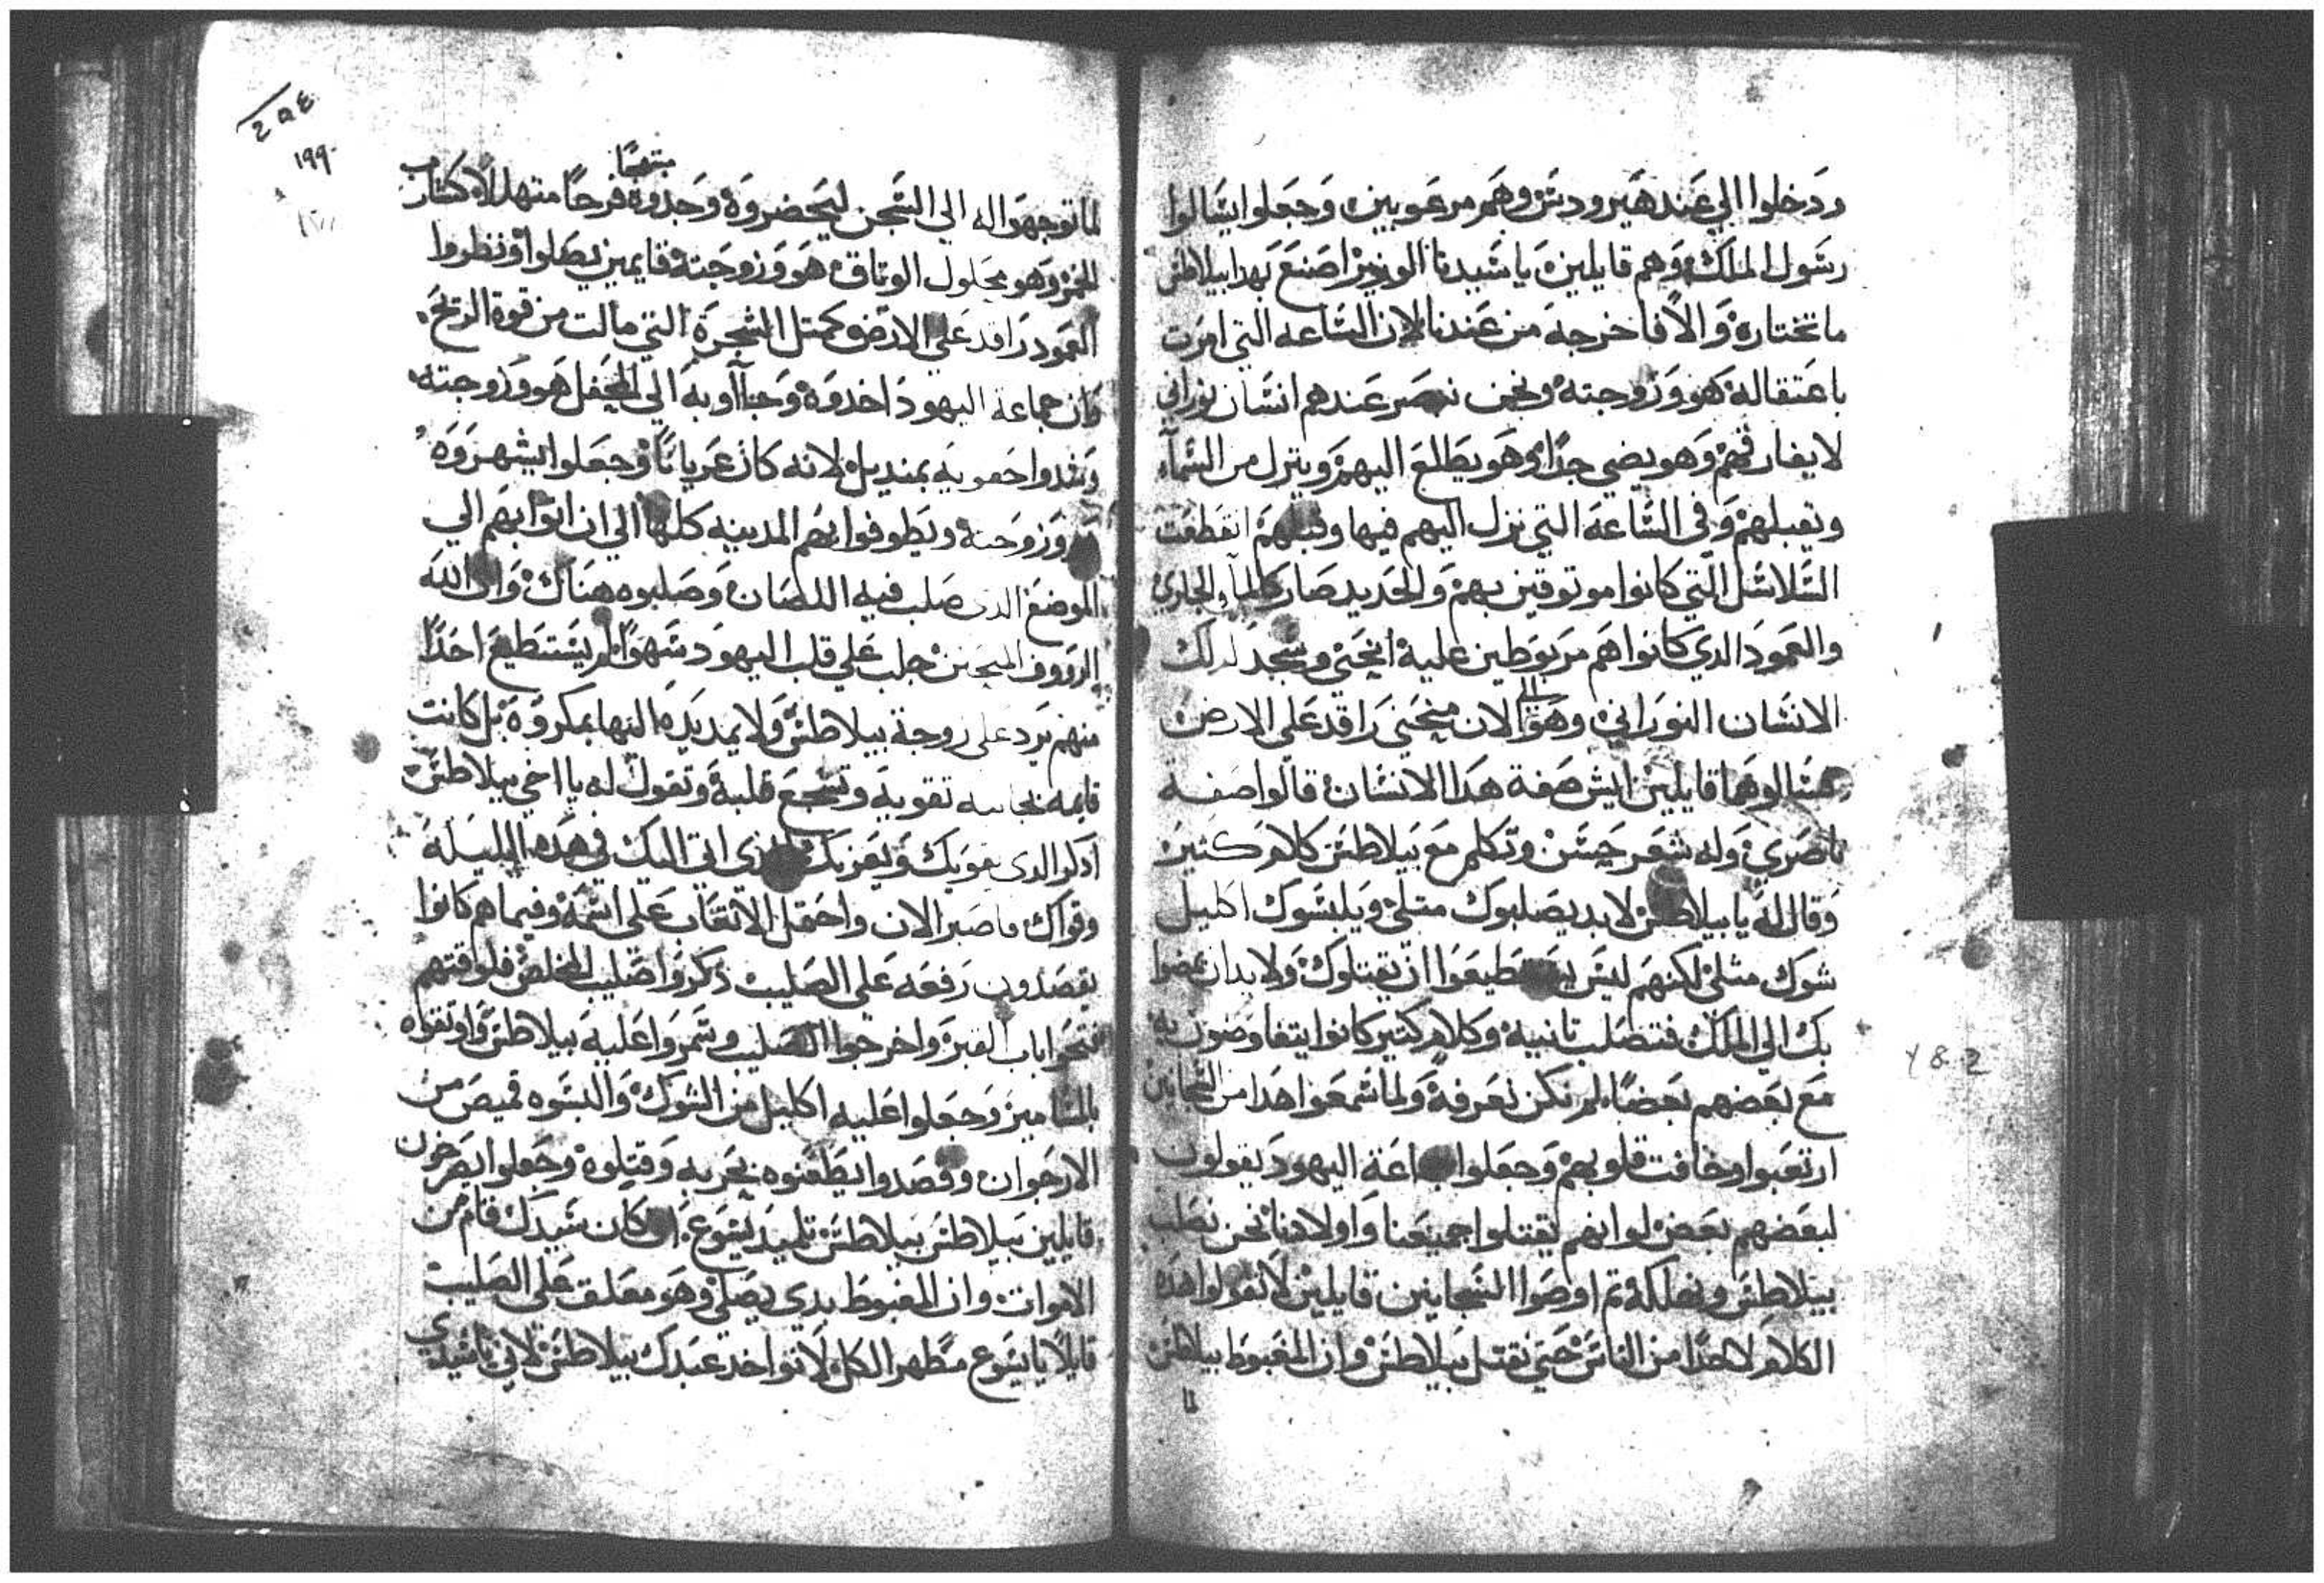 ودخلوا الي عند هيرودس وهم مرعوبين وجعلوا يسالوا
رسول الملك وهم قايلين يا سيدنا الوزير اصنع بهدا بيلاطس
ما تختاره والا فاخرجه من عندنا لان الساعه التي امرت
باعتقاله هو وزوجته ونحن نبصر عندهم انسان نوراني
لا يفارقهم وهو يضي جدا وهو يطلع اليهم وينزل من السمآء
ويقبلهم وفي الساعه التي نزل اليهم فيها وقبلهم انقطعت
السلاسل التي كانوا موتوقين بهم والحديد صار كالمآء الجاري
والعمود الدي كانوا هم مربوطين عليه انحني وسجد لدلك
الانسان النوراني وهو الي الان منحني راقد علي الارض
فسالوهما قايلين ايش صفة هدا الانسان قالوا صفة
ناصري وله شعر حسن وتكلم مع بيلاطس كلام كتير
وقال له يا بيلاطس لا بد يصلبوك متلي ويلبسوك اكليل
شوك متلي لكنهم ليس يستطيعوا ان يقتلوك ولا بد ان يمضوا
بك الي الملك فتصلب تانية وكلام كتير كانوا يتفاوضون به
مع بعضهم بعضا لم نكن نعرفه ولما سمعوا هدا من السجانين
ارتعبوا وخافت قلوبهم وجعلوا جماعة اليهود يقولون
لبعضهم بعض لو انهم يقتلوا جميعنا واولادنا نحن نصلب
بيلاطس ونهلكه تم اوصوا السجانين قايلين لا تقولوا هده
الكلام لاحدا من الناس حتي نقتل بيلاطس وان المغبوط بيلاطس
٢٩٤
١٩٩
لما توجهوا له الي السجن ليحضروه وجدوه فرحا مبتهجا متهللا كشارب
الخمر وهو محلول الوتاق هو وزوجته قايمين يصلوا ونظروا
العمود راقد علي الارض كمتل الشجرة التي مالت من قوة الريح
وان جماعة اليهود اخدوه وجاآوا به الي المحفل هو وزوجته
وشدوا حقويه بمنديل لانه كان عريانا وجعلوا يشهروه
هو وزوجته ويطوفوا بهم المدينه كلها الي ان اتوا بهم الي
الموضع الدي صلب فيه اللصان وصلبوه هناك وان الله
الرووف المتحنن جلب علي قلب اليهود سهوا لم يستطيع احدا
منهم يرد علي زوجة بيلاطس ولا يمد يده اليها بمكروه بل كانت
قايمه بجانبه تقويه وتشجع قلبه وتقول له يا اخي بيلاطس
ادكر الدي يقويك ويعزيك الدي اتي اليك في هده الليلة
وقواك فاصبر الان واحتمل الاتعاب علي اسمه وفيما هم كانوا
يقصدون رفعه علي الصليب دكروا صليب المخلص فلوقتهم
فتحوا باب القبر واخرجوا الصليب وسمروا عليه بيلاطس واوتقوه
بالمسامير وجعلوا عليه اكليل من الشوك والبسوه قميص من
الارجوان وقصدوا يطعنوه بحربه وقتلوه وجعلوا يصرخون
قايلين بيلاطس بيلاطس تلميد يسوع ان كان سيدك قام من
الاموات وان المغبوط بدي يصلي وهو معلق علي الصليب
قايلا يا يسوع مطهر الكل لا تواخد عبدك بيلاطس لاني يا سيدي